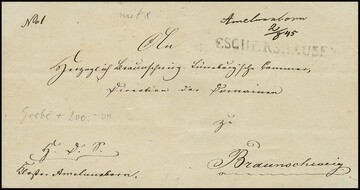 No 1
Amelunxborn
2/8 45
ESCHERSHAUSEN
An
Herzoglich Braunschweig. Lüneburgische Cammer,
Direction der Domainen
zu
Braunschweig
H. D. S.
Kloster Amelunxborn.